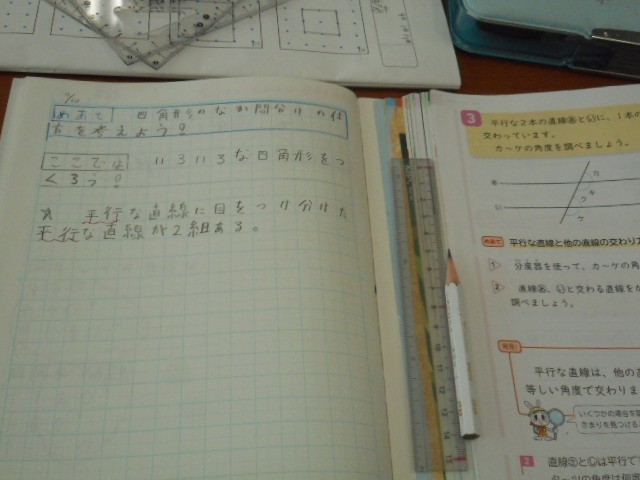 めあて 四角形のなか間分けの仕
方を考えよう。
ここでは いろいろな四角形をつ
くろう。
平行な直線に目をつけ分けた
平行な直線が2組ある。
3 平行な2本の直線あといに、1本の
交わっています。
カ〜ケの角度を調べましょう。
あ
い
カ
キ
ク
ケ
めあて 平行な直線と他の直線の交わり方
1 分度器を使って、カ〜ケの角
2 直線あ、いと交わる直線をか
調べましょう。
平行な直線は、他の直
等しい角度で交わりま
いくつかの場合を調
きまりを見つける
2 直線あといは平行で